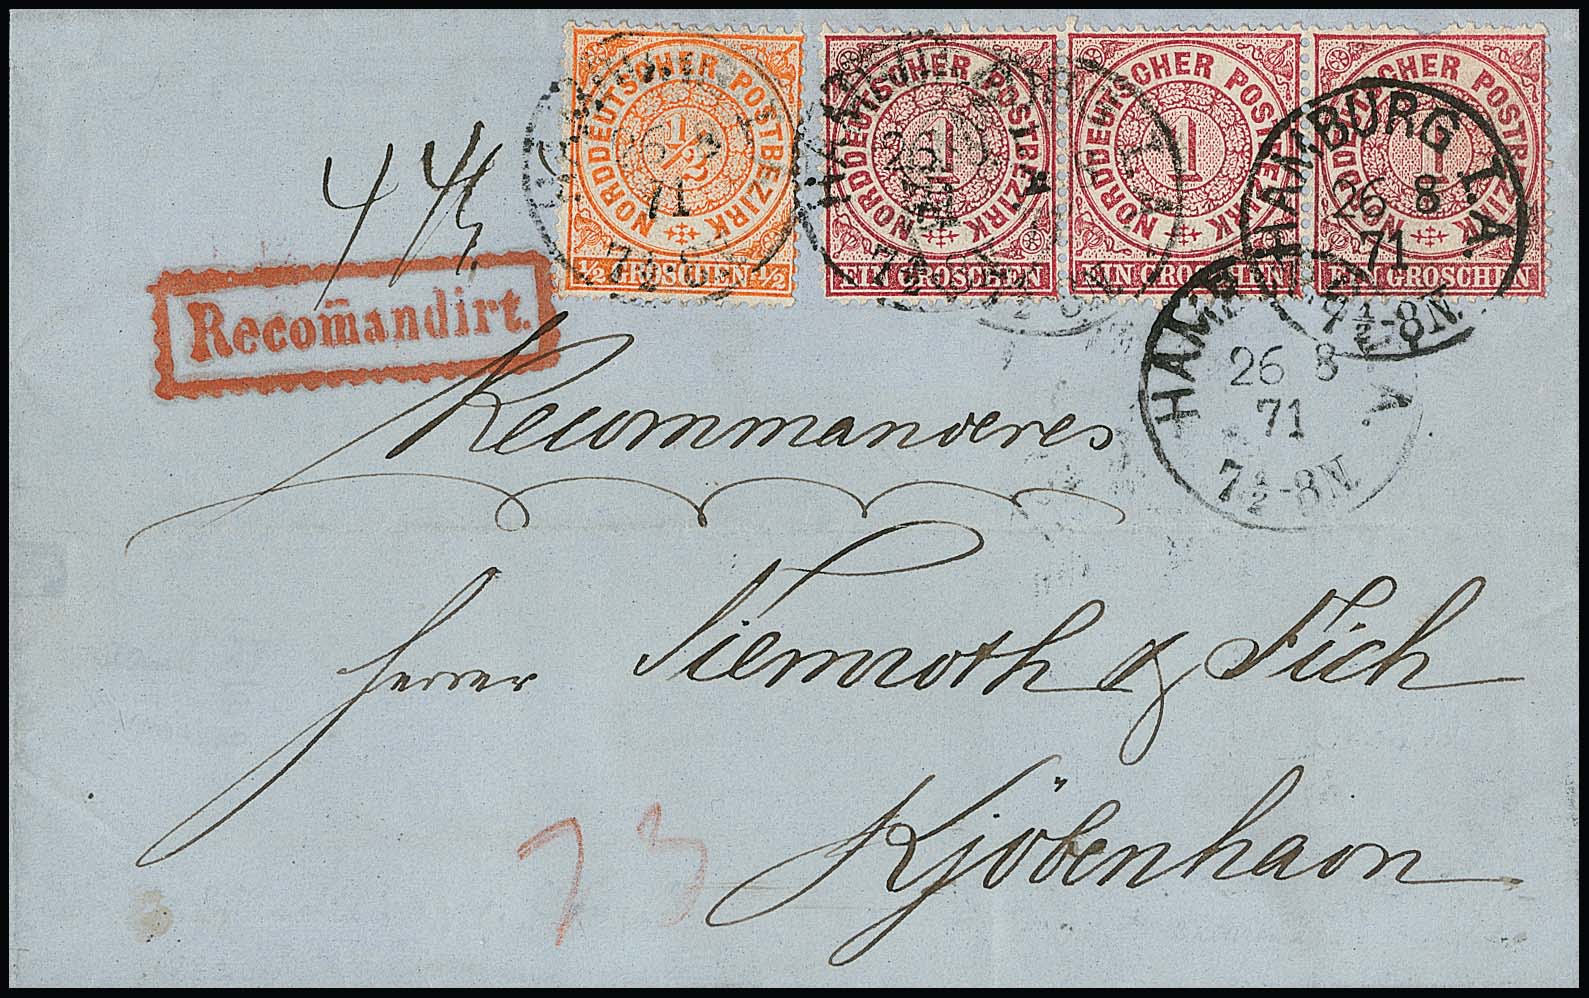 NORDDEUTSCHER POSTBEZIRK
1/2
1/2 GROSCHEN 1/2
NORDDEUTSCHER POSTBEZIRK
1
EIN GROSCHEN
NORDDEUTSCHER POSTBEZIRK
1
EIN GROSCHEN
NORDDEUTSCHER POSTBEZIRK
1
EIN GROSCHEN
71
HAMBURG I.A.
26 8
71
7½-8N.
HAMB A.
26 8
71
7½-8N.
Recom̄andirt.
Recommanderes
Herrer Tiemroth & Fich
Kjöbenhaon